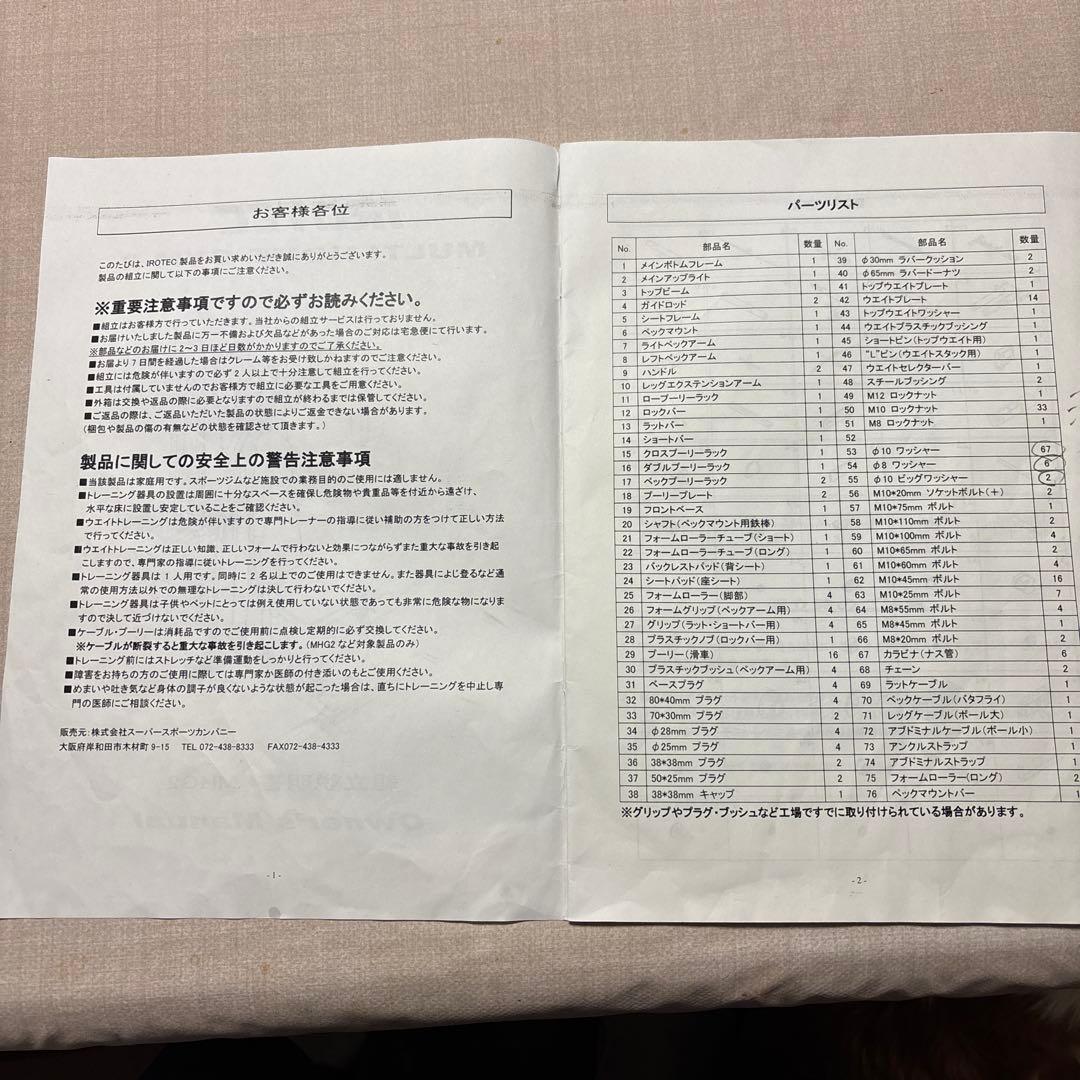 お客様各位
このたびは、IROTEC 製品をお買い求めいただき誠にありがとうございます。
製品の組立に関して以下の事項にご注意ください。
※重要注意事項ですので必ずお読みください。
■組立はお客様方で行っていただきます。当社からの組立サービスは行っておりません。
■お届けいたしました製品に万一不備および欠品などがあった場合のご対応は宅急便にて行います。
※部品などのお届けに2~3日ほど日数がかかりますのでご了承ください。
■お届より7日間を経過した場合はクレーム等をお受け致しかねますのでご注意ください。
■組立には危険が伴いますので必ず2人以上で十分注意して組立を行ってください。
■工具は付属していませんのでお客様方で組立に必要な工具をご用意ください。
■外箱は交換や返品の際に必要となりますので組立が終わるまでは保管してください。
■ご返品の際は、ご返品いただいた製品の状態によりご返金できない場合があります。
(梱包や製品の傷の有無などの状態を確認させて頂きます。)
製品に関しての安全上の警告注意事項
■当該製品は家庭用です。スポーツジムなど施設での業務目的のご使用には適しません。
■トレーニング器具の設置は周囲に十分なスペースを確保し危険物や貴重品等を付近から遠ざけ、
水平な床に設置し安定していることをご確認ください。
■ウエイトトレーニングは危険が伴いますので専門トレーナーの指導に従い補助の方をつけて正しい方法
で行ってください。
■ウエイトトレーニングは正しい知識、正しいフォームで行わないと効果につながらずまた重大な事故を引き起
こしますので、専門家の指導に従いトレーニングを行ってください。
■トレーニング器具は1人用です。同時に2名以上でのご使用はできません。また器具によじ登るなど通
常の使用方法以外での無理なトレーニングは決して行わないでください。
■トレーニング器具は子供やペットにとっては例え使用していない状態であっても非常に危険な物になりま
すので決して近づけないでください。
■ケーブル・プーリーは消耗品ですのでご使用前に点検し定期的に必ず交換してください。
※ケーブルが断裂すると重大な事故を引き起こします。(MHG2など対象製品のみ)
■トレーニング前にはストレッチなど準備運動をしっかりと行ってください。
■障害をお持ちの方のご使用に際しては専門家か医師の付き添いのもとご使用ください。
■めまいや吐き気など身体の調子が良くないような状態が起こった場合は、直ちにトレーニングを中止し専
門の医師にご相談ください。
販売元:株式会社スーパースポーツカンパニー
大阪府岸和田市木材町9-15 TEL 072-438-8333 FAX072-438-4333
-1-
パーツリスト
No. 部品名 数量 No. 部品名 数量
1 メインボトムフレーム 1 39 φ30mm ラバークッション 2
2 メインアップライト 1 40 φ65mm ラバードーナツ 2
3 トップビーム 1 41 トップウエイトプレート 1
4 ガイドロッド 2 42 ウエイトプレート 14
5 シートフレーム 1 43 トップウエイトワッシャー 1
6 ペックマウント 1 44 ウエイトプラスチックブッシング 1
7 ライトペックアーム 1 45 ショートピン(トップウエイト用) 1
8 レフトペックアーム 1 46 “L”ピン(ウエイトスタック用) 1
9 ハンドル 2 47 ウエイトセレクターバー 1
10 レッグエクステンションアーム 1 48 スチールブッシング 2
11 ロープーリーラック 1 49 M12 ロックナット 1
12 ロックバー 1 50 M10 ロックナット 33
13 ラットバー 1 51 M8 ロックナット 1
14 ショートバー 1 52
15 クロスプーリーラック 1 53 φ10 ワッシャー 67
16 ダブルプーリーラック 1 54 φ8 ワッシャー 6
17 ペックプーリーラック 2 55 φ10 ビッグワッシャー 2
18 プーリープレート 2 56 M10*20mm ソケットボルト(+) 2
19 フロントベース 1 57 M10*75mm ボルト 1
20 シャフト(ペックマウント用鉄棒) 1 58 M10*110mm ボルト 2
21 フォームローラーチューブ(ショート) 1 59 M10*100mm ボルト 4
22 フォームローラーチューブ(ロング) 1 60 M10*65mm ボルト 2
23 バックレストパッド(背シート) 1 61 M10*60mm ボルト 4
24 シートパッド(座シート) 1 62 M10*45mm ボルト 16
25 フォームローラー(脚部) 4 63 M10*25mm ボルト 7
26 フォームグリップ(ペックアーム用) 4 64 M8*55mm ボルト 4
27 グリップ(ラット・ショートバー用) 4 65 M8*45mm ボルト 1
28 プラスチックノブ(ロックバー用) 1 66 M8*20mm ボルト 1
29 プーリー(滑車) 16 67 カラビナ(ナス管) 6
30 プラスチックブッシュ(ペックアーム用) 4 68 チェーン 2
31 ベースプラグ 4 69 ラットケーブル 1
32 80*40mm プラグ 4 70 ペックケーブル(バタフライ) 1
33 70*30mm プラグ 2 71 レッグケーブル(ボール大) 1
34 φ28mm プラグ 4 72 アブドミナルケーブル(ボール小) 1
35 φ25mm プラグ 4 73 アンクルストラップ 1
36 38*38mm プラグ 2 74 アブドミナルストラップ 1
37 50*25mm プラグ 2 75 フォームローラー(ロング) 2
38 38*38mm キャップ 1 76 ペックマウントバー 1
※グリップやプラグ・ブッシュなど工場ですでに取り付けられている場合があります。
-2-